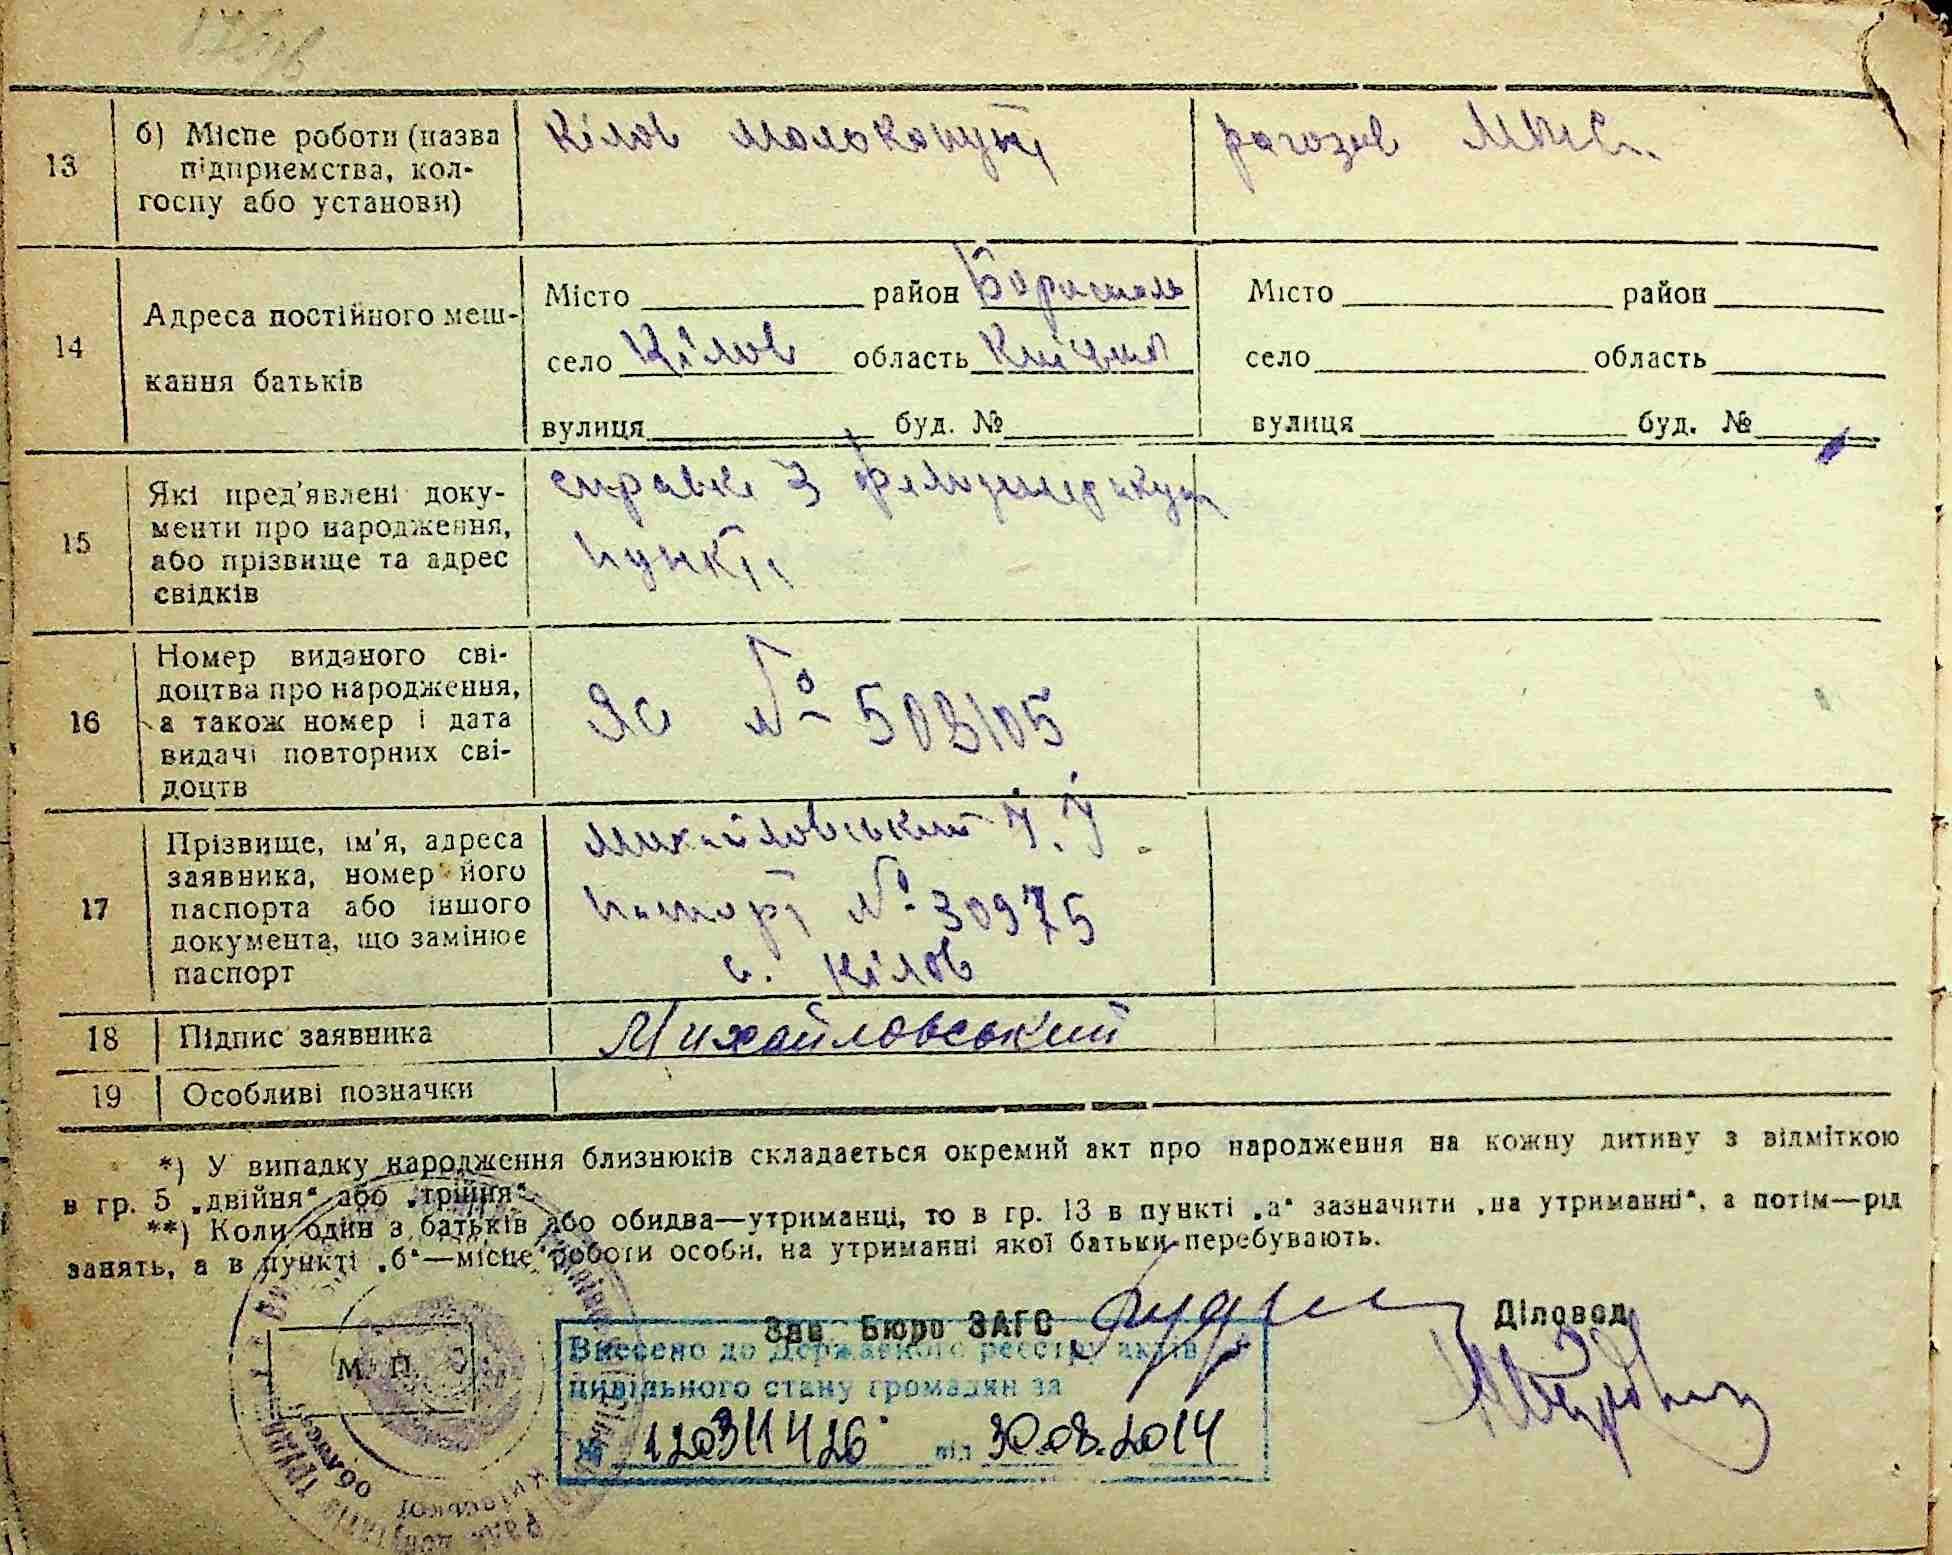 13
б) Місце роботи (назва
підприємства, кол-
госпу або установи)
Кілов молокопункт
рогозів МТС.
14
Адреса постійного меш-
кання батьків
Місто район Бориспіль
село Кілов область Київська
вулиця буд. №
Місто район
село область
вулиця буд. №
15
Які пред'явлені доку-
менти про народження,
або прізвище та адрес
свідків
справка з фельдшерську
пункту
16
Номер виданого сві-
доцтва про народження,
а також номер і дата
видачі повторних сві-
доцтв
ЯС № 503105
17
Прізвище, ім'я, адреса
заявника, номер його
паспорта або іншого
документа, що замінює
паспорт
Михайловський Й. Й.
паспорт № 30975
с. Кілов
18
Підпис заявника
Михайловський
19
Особливі позначки
*) У випадку народження близнюків складається окремий акт про народження на кожну дитину з відміткою
в гр. 5 „двійня" або „трійня".
**) Коли один з батьків або обидва—утриманці, то в гр. 13 в пункті „а" зазначити „на утриманні", а потім—рід
занять, а в пункті „б"—місце роботи особи, на утриманні якої батьки перебувають.
Зав Бюро ЗАГС
Діловод
М. П.
Внесено до Державного реєстру актів
цивільного стану громадян за
№ 120311426 від 30.08.2014